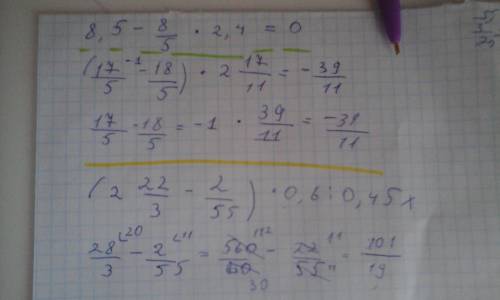 8,5 - 8/5 · 2,4 = 0
(17/5 - 18/5) · 2 17/11 = - 39/11
17/5 - 18/5 = -1 · 39/11 = -39/11
(2 22/3 - 2/55) · 0,6 : 0,45x
28/3 - 2/55 = 560/60 - 22/55 = 101/19